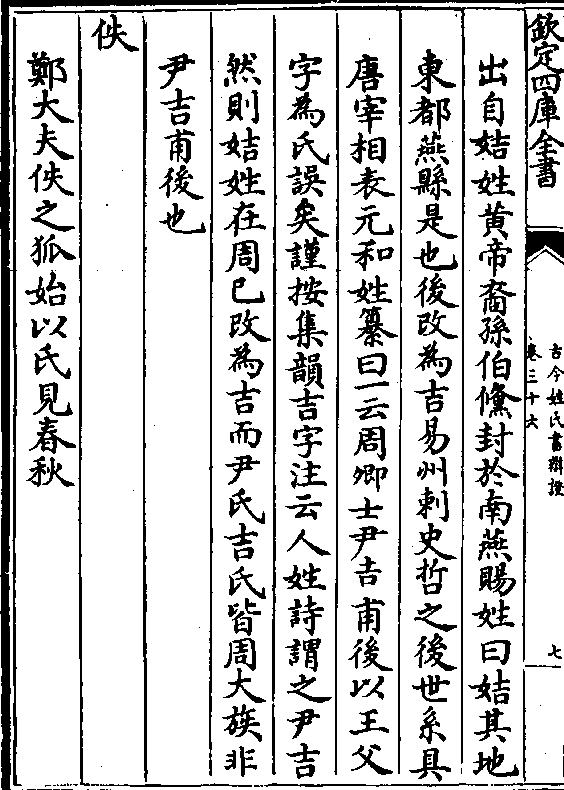 欽定四庫全書
古今姓氏書辯證
卷三十六
七
出自姞姓黄帝裔孫伯鯈封於南燕賜姓曰姞其地
東都燕縣是也後改為吉易州刺史哲之後世系具
唐宰相表元和姓纂曰一云周卿士尹吉甫後以王父
字為氏誤矣謹按集韻吉字注云人姓詩謂之尹吉
然則姞姓在周已改為吉而尹氏吉氏皆周大族非
尹吉甫後也
佚
鄭大夫佚之狐始以氏見春秋